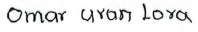 Omar uran Lora